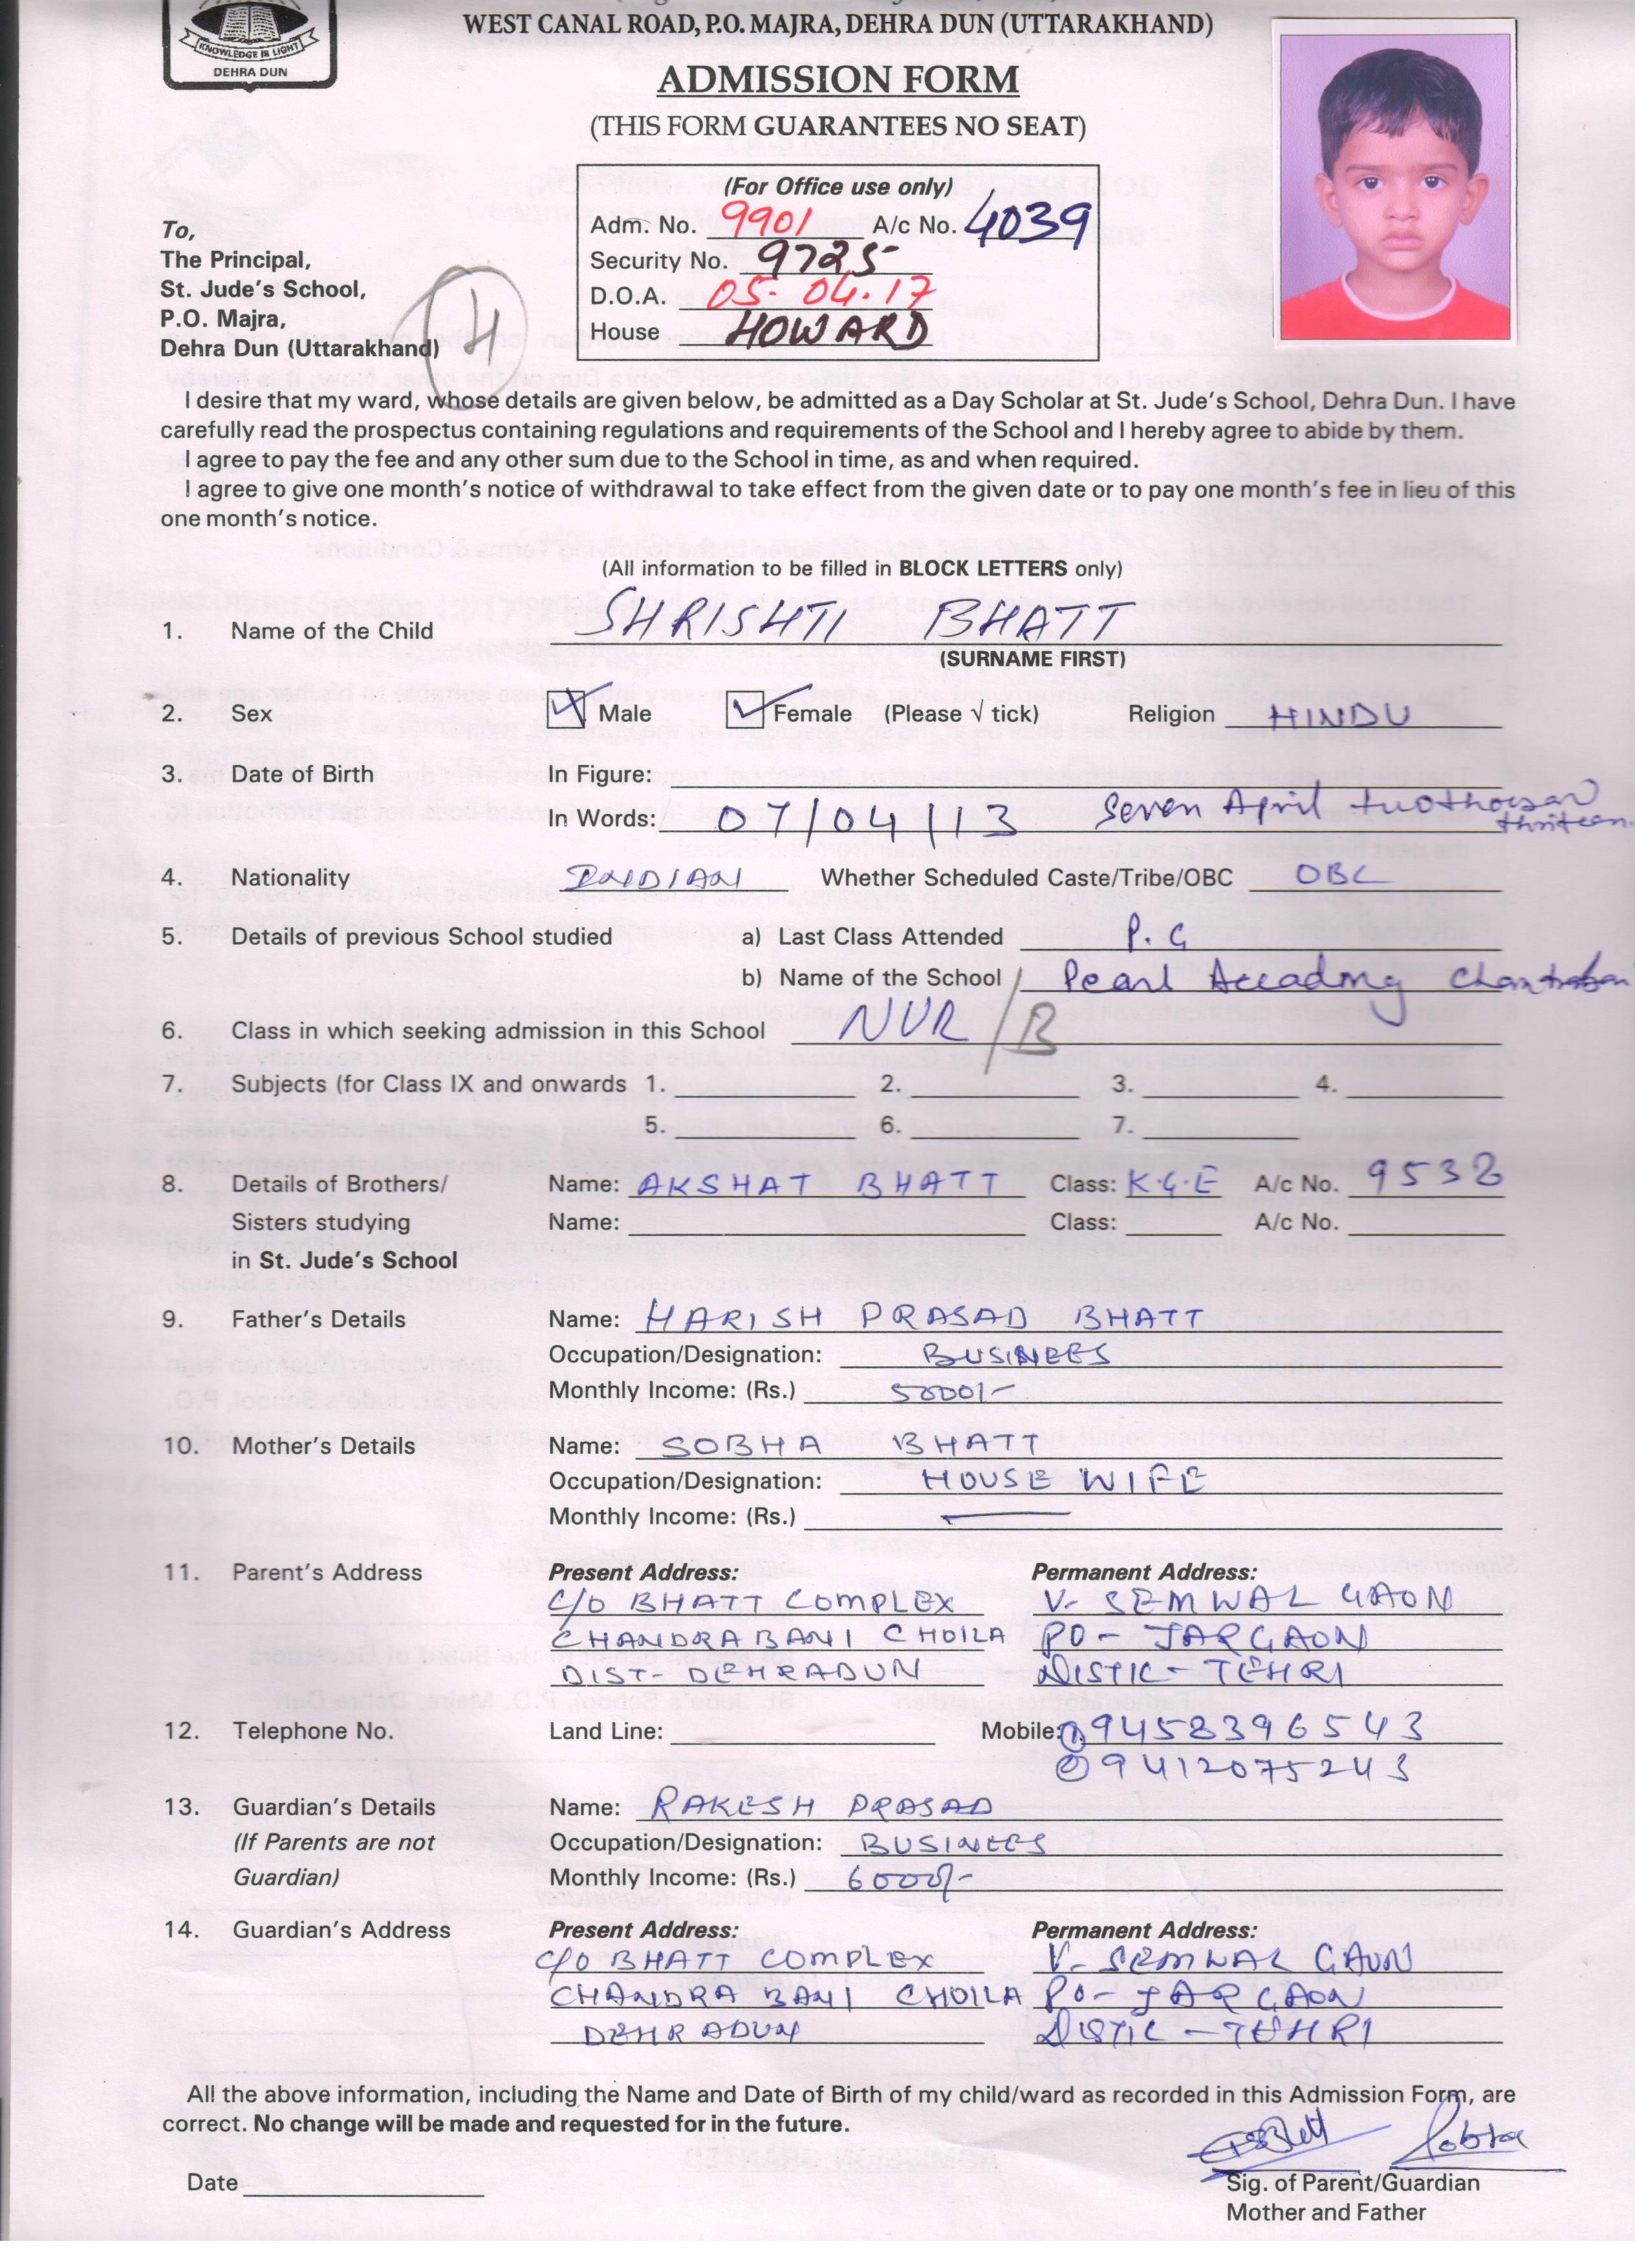 KNOWLEDGE IS LIGHT
DEHRA DUN
WEST CANAL ROAD, P.O. MAJRA, DEHRA DUN (UTTARAKHAND)
ADMISSION FORM
(THIS FORM GUARANTEES NO SEAT)
(For Office use only)
Adm. No. 9901 A/c No. 4039
Security No. 9725
D.O.A. 05.04.17
House HOWARD
To,
The Principal,
St. Jude's School,
P.O. Majra,
Dehra Dun (Uttarakhand)
H
I desire that my ward, whose details are given below, be admitted as a Day Scholar at St. Jude's School, Dehra Dun. I have
carefully read the prospectus containing regulations and requirements of the School and I hereby agree to abide by them.
I agree to pay the fee and any other sum due to the School in time, as and when required.
I agree to give one month's notice of withdrawal to take effect from the given date or to pay one month's fee in lieu of this
one month's notice.
(All information to be filled in BLOCK LETTERS only)
1. Name of the Child SHRISHTI BHATT
(SURNAME FIRST)
2. Sex Male Female (Please √ tick) Religion HINDU
3. Date of Birth In Figure:
In Words: 07/04/13 Seven April twothousan
thriteen.
4. Nationality INDIAN Whether Scheduled Caste/Tribe/OBC OBC
5. Details of previous School studied a) Last Class Attended P.G
b) Name of the School Pearl Accadmy
6. Class in which seeking admission in this School NUR/B
7. Subjects (for Class IX and onwards 1. 2. 3. 4.
5. 6. 7.
8. Details of Brothers/ Name: AKSHAT BHATT Class: K.G.E A/c No. 9532
Sisters studying Name: Class: A/c No.
in St. Jude's School
9. Father's Details Name: HARISH PRASAD BHATT
Occupation/Designation: BUSINEES
Monthly Income: (Rs.) 5000/-
10. Mother's Details Name: SOBHA BHATT
Occupation/Designation: HOUSE WIFE
Monthly Income: (Rs.)
11. Parent's Address Present Address: Permanent Address:
C/O BHATT COMPLEX V- SEMWAL GAON
CHANDRABANI CHOILA PO- JARGAON
DIST- DEHRADUN DISTIC- TEHRI
12. Telephone No. Land Line: Mobile: ① 9458396543
② 9412075243
13. Guardian's Details Name: RAKESH PRASAD
(If Parents are not Occupation/Designation: BUSINEES
Guardian) Monthly Income: (Rs.) 6000/-
14. Guardian's Address Present Address: Permanent Address:
C/O BHATT COMPLEX V- SEMWAL GAON
CHANDRA BANI CHOILA PO- JARGAON
DEHRADUN DISTIC - TEHRI
All the above information, including the Name and Date of Birth of my child/ward as recorded in this Admission Form, are
correct. No change will be made and requested for in the future.
Sobha
Date
Sig. of Parent/Guardian
Mother and Father